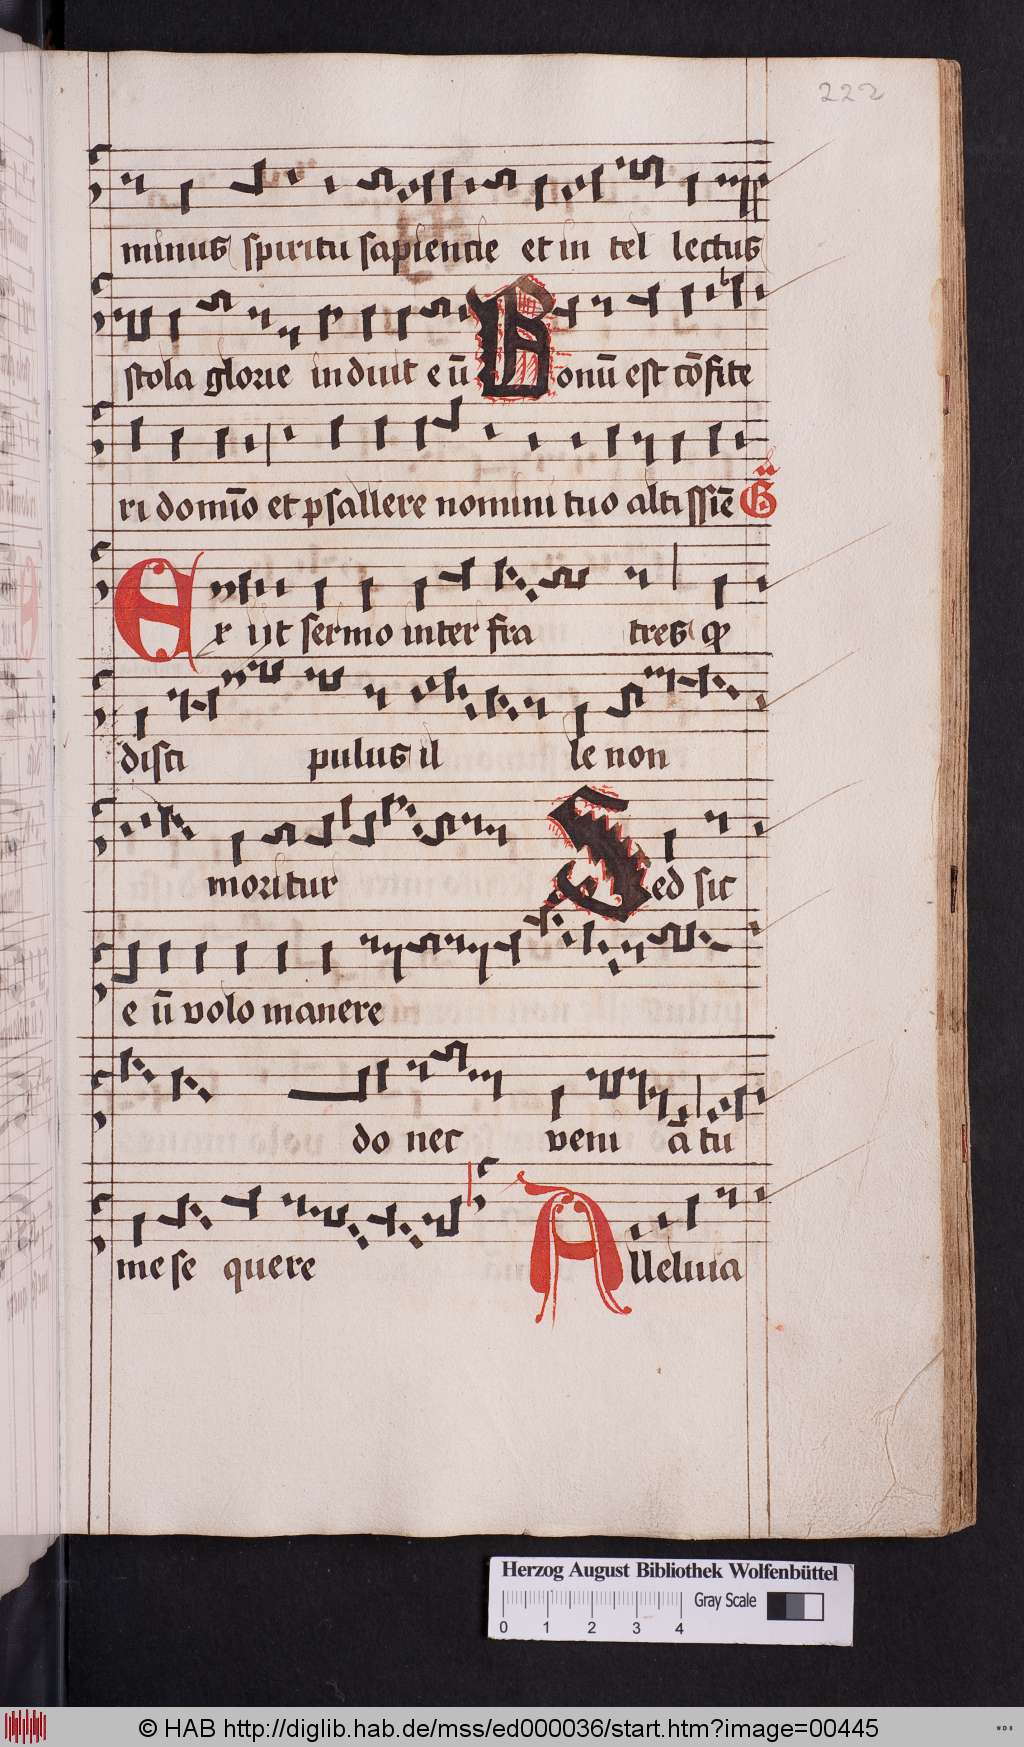 222
minus spiritu sapiencie et in tel lectus
stola glorie induit e ū Bonū est cōfite
ri domīo et psallere nomini tuo altissīe Gͧ
Exiit sermo inter fra tres qͦ
disci pulus il le non
moritur Sed sic
e ū volo manere
do nec veni ā tu
me se quere Alleluia
Herzog August Bibliothek Wolfenbüttel
Gray Scale
0 1 2 3 4
© HAB http://diglib.hab.de/mss/ed000036/start.htm?image=00445